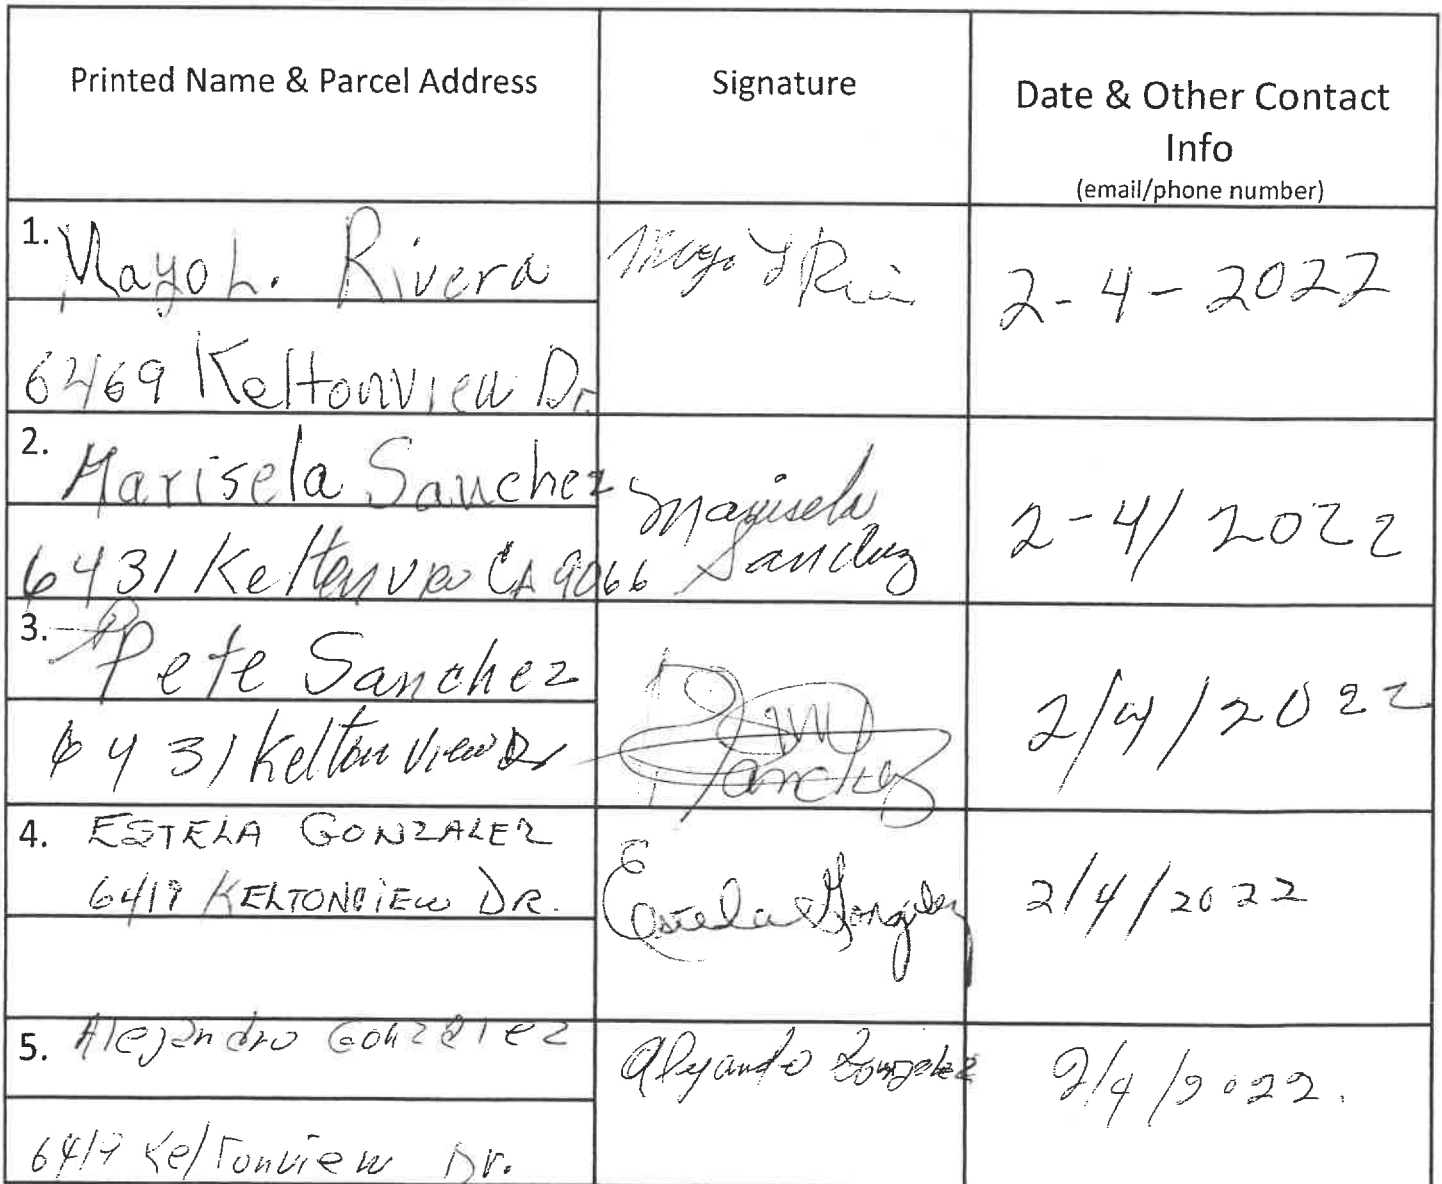 Printed Name & Parcel Address
Signature
Date & Other Contact
Info
(email/phone number)
1. Mayo L. Rivera
6469 Keltonview Dr.
Mayo L Rivera
2-4-2022
2. Marisela Sanchez
6431 Kelton CA 9066
Marisela
Sanchez
2-4/2022
3. Pete Sanchez
6431 Kelton View Dr
Sanchez
2/4/2022
4. ESTELA GONZALEZ
6419 KELTONVIEW DR.
Estela Gonzalez
2/4/2022
5. Alejandro Gonzalez
6419 Keltonview Dr.
Alejandro Gonzalez
2/4/2022.